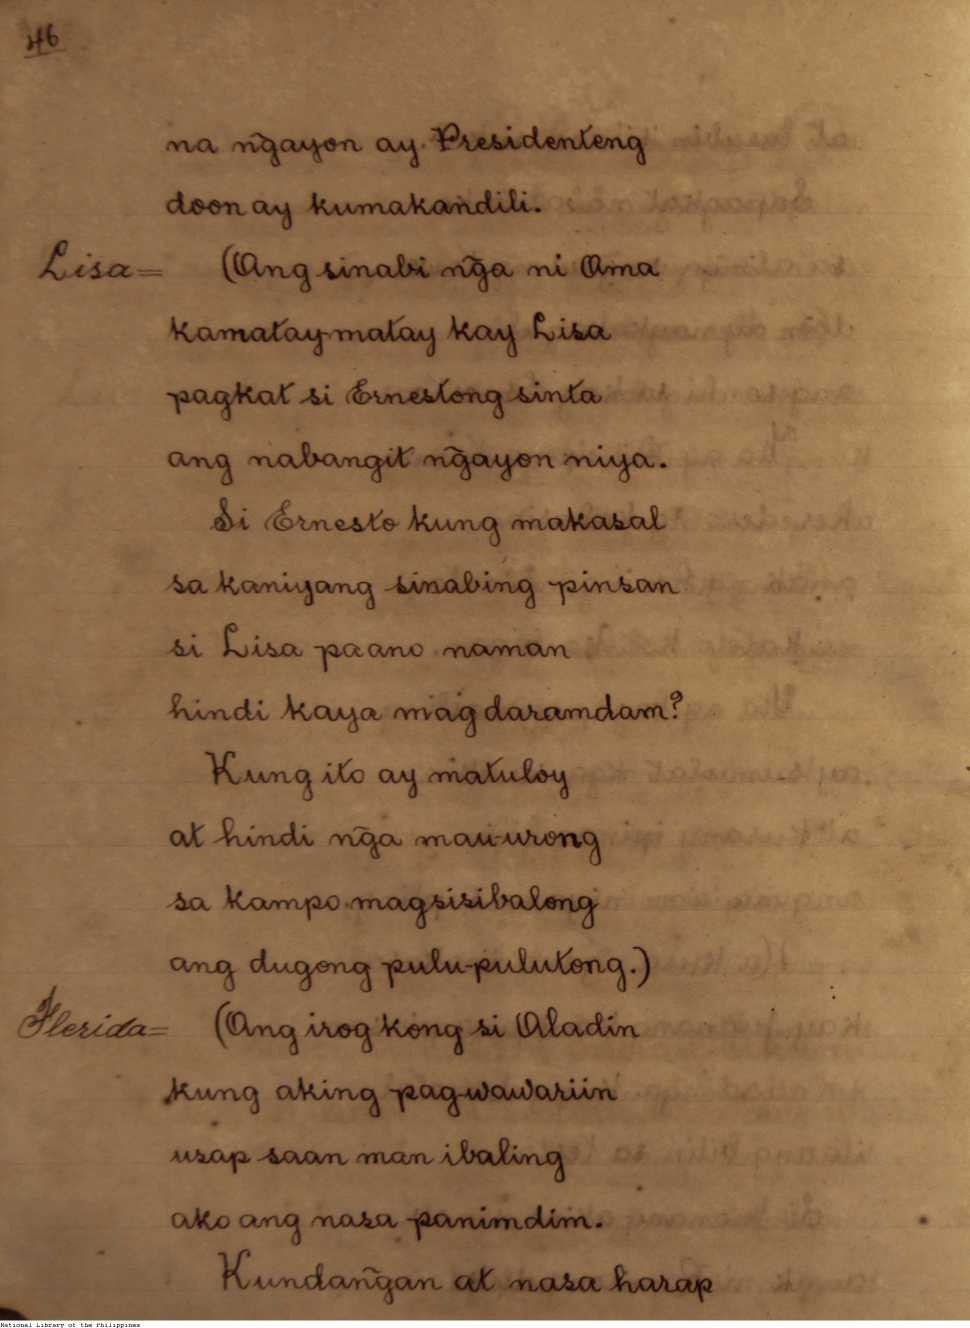 46
na ng̃ayon ay Presidenteng
doon ay kumakandili.
Lisa= (Ang sinabi ng̃a ni Ama
kamatay-matay kay Lisa
pagkat si Ernestong sinta
ang nabangit ng̃ayon niya.
Si Ernesto kung makasal
sa kaniyang sinabing pinsan
si Lisa paano naman
hindi kaya magdaramdam?
Kung ito ay matuloy
at hindi ng̃a mau-urong
sa kampo magsisibalong
ang dugong pulu-pulutong.)
Flerida= (Ang irog kong si Aladin
kung aking pag-wawariin
usap saan man ibaling
ako ang nasa panimdim.
Kundang̃an at nasa harap
National Library of the Philippines